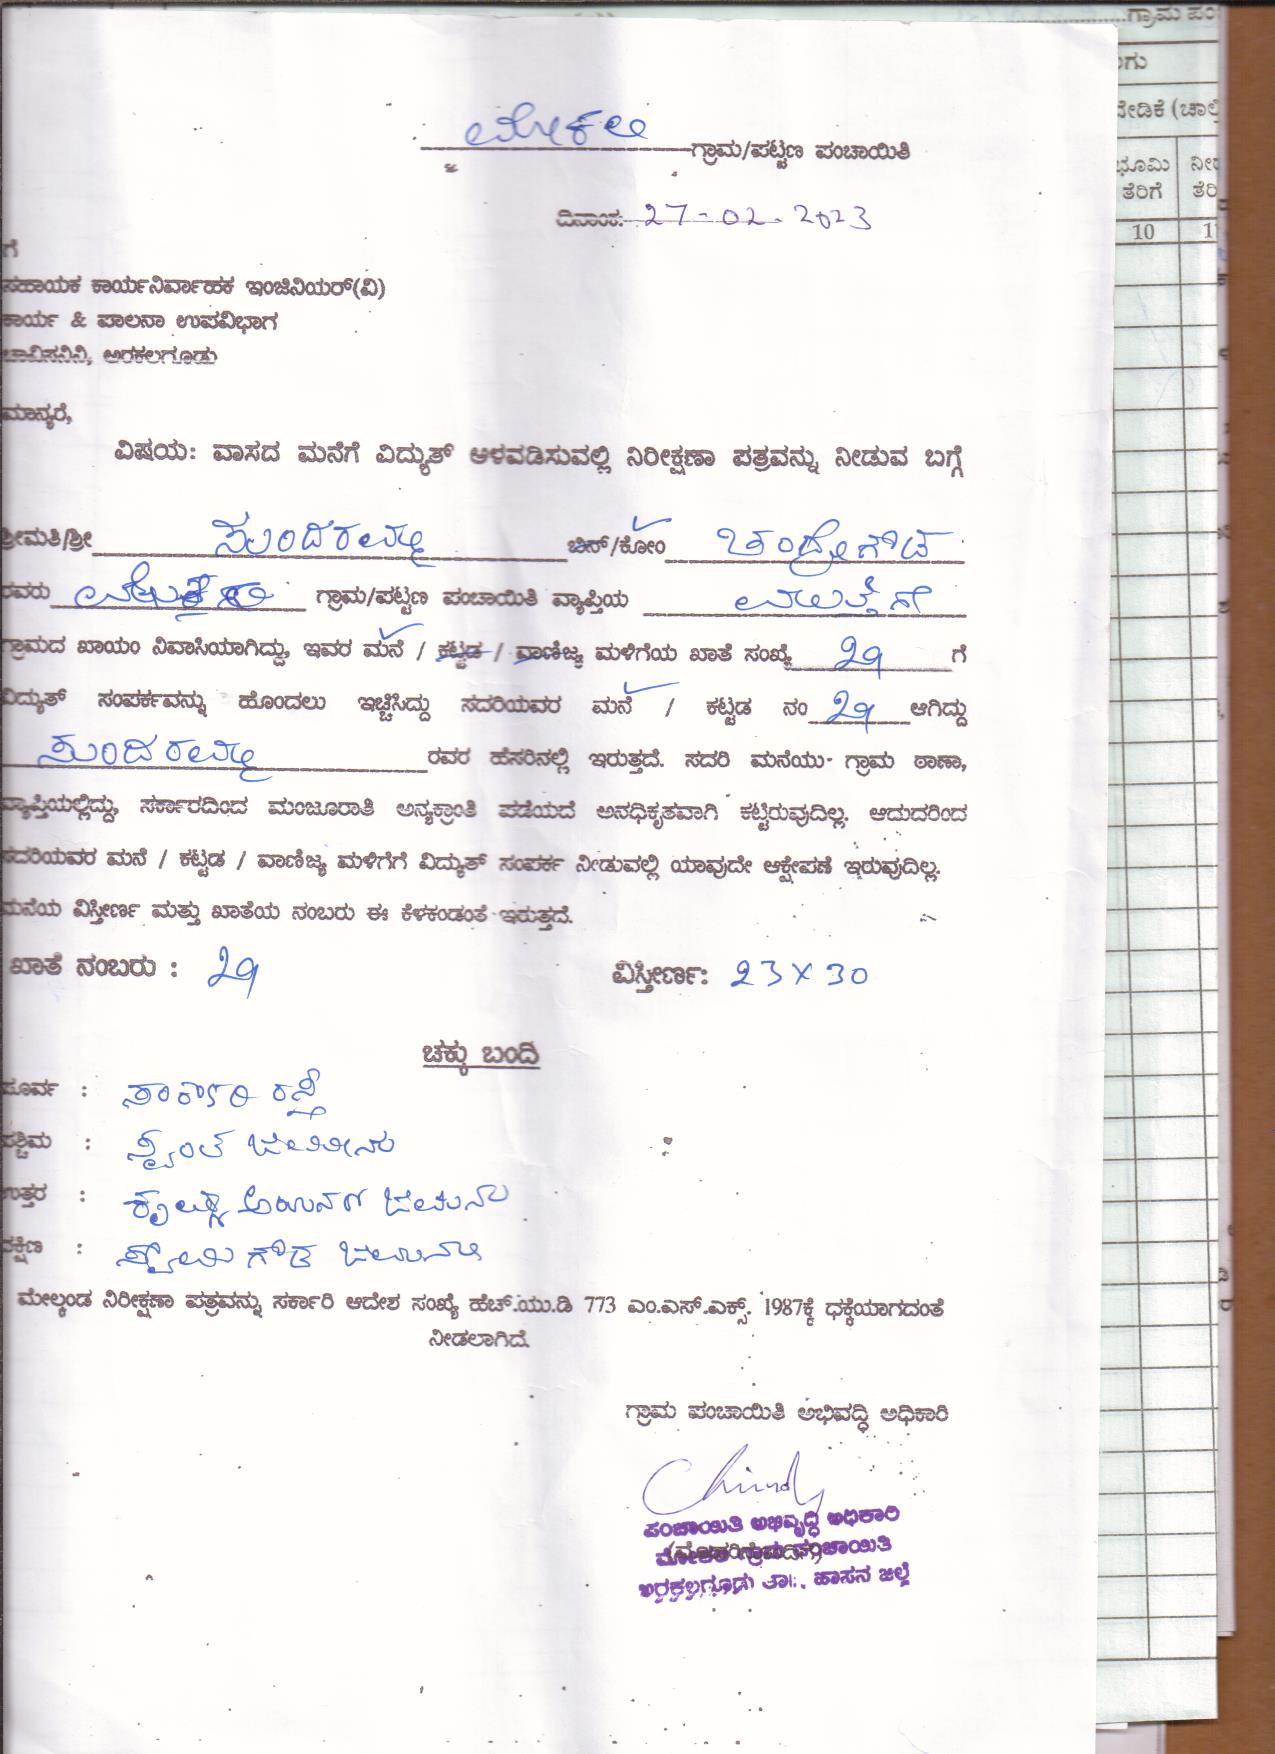 ಮೋಕಲಿ ಗ್ರಾಮ/ಪಟ್ಟಣ ಪಂಚಾಯಿತಿ
ದಿನಾಂಕ: 27-02-2023
ಗೆ
ಸಹಾಯಕ ಕಾರ್ಯನಿರ್ವಾಹಕ ಇಂಜಿನಿಯರ್(ವಿ)
ಕಾರ್ಯ & ಪಾಲನಾ ಉಪವಿಭಾಗ
ಚಾವಿಸನಿನಿ, ಅರಕಲಗೂಡು
ಮಾನ್ಯರೆ,
ವಿಷಯ: ವಾಸದ ಮನೆಗೆ ವಿದ್ಯುತ್ ಅಳವಡಿಸುವಲ್ಲಿ ನಿರೀಕ್ಷಣಾ ಪತ್ರವನ್ನು ನೀಡುವ ಬಗ್ಗೆ
ಶ್ರೀಮತಿ/ಶ್ರೀ ಸುಂದರಮ್ಮ ಬಿನ್/ಕೋಂ ಚಂದ್ರೇಗೌಡ
ರವರು ಗ್ರಾಮ/ಪಟ್ಟಣ ಪಂಚಾಯಿತಿ ವ್ಯಾಪ್ತಿಯ
ಗ್ರಾಮದ ಖಾಯಂ ನಿವಾಸಿಯಾಗಿದ್ದು, ಇವರ ಮನೆ / ಕಟ್ಟಡ / ವಾಣಿಜ್ಯ ಮಳಿಗೆಯ ಖಾತೆ ಸಂಖ್ಯೆ 29 ಗೆ
ವಿದ್ಯುತ್ ಸಂಪರ್ಕವನ್ನು ಹೊಂದಲು ಇಚ್ಚಿಸಿದ್ದು ಸದರಿಯವರ ಮನೆ / ಕಟ್ಟಡ ನಂ 29 ಆಗಿದ್ದು
ಸುಂದರಮ್ಮ ರವರ ಹೆಸರಿನಲ್ಲಿ ಇರುತ್ತದೆ. ಸದರಿ ಮನೆಯು- ಗ್ರಾಮ ಠಾಣಾ,
ವ್ಯಾಪ್ತಿಯಲ್ಲಿದ್ದು, ಸರ್ಕಾರದಿಂದ ಮಂಜೂರಾತಿ ಅನ್ಯಕ್ರಾಂತಿ ಪಡೆಯದೆ ಅನಧಿಕೃತವಾಗಿ ಕಟ್ಟಿರುವುದಿಲ್ಲ. ಆದುದರಿಂದ
ಸದರಿಯವರ ಮನೆ / ಕಟ್ಟಡ / ವಾಣಿಜ್ಯ ಮಳಿಗೆಗೆ ವಿದ್ಯುತ್ ಸಂಪರ್ಕ ನೀಡುವಲ್ಲಿ ಯಾವುದೇ ಆಕ್ಷೇಪಣೆ ಇರುವುದಿಲ್ಲ.
ಮನೆಯ ವಿಸ್ತೀರ್ಣ ಮತ್ತು ಖಾತೆಯ ನಂಬರು ಈ ಕೆಳಕಂಡಂತೆ ಇರುತ್ತದೆ.
ಖಾತೆ ನಂಬರು : 29 ವಿಸ್ತೀರ್ಣ: 23 X 30
ಚಕ್ಕು ಬಂದಿ
ಪೂರ್ವ : ಸರ್ಕಾರಿ ರಸ್ತೆ
ಪಶ್ಚಿಮ : ಸ್ವಂತ ಜಮೀನು
ಉತ್ತರ : ಜಮೀನು
ದಕ್ಷಿಣ : ಸ್ವಾಮಿಗೌಡ ಜಮೀನು
ಮೇಲ್ಕಂಡ ನಿರೀಕ್ಷಣಾ ಪತ್ರವನ್ನು ಸರ್ಕಾರಿ ಆದೇಶ ಸಂಖ್ಯೆ ಹೆಚ್.ಯು.ಡಿ 773 ಎಂ.ಎಸ್.ಎಕ್ಸ್. 1987ಕ್ಕೆ ಧಕ್ಕೆಯಾಗದಂತೆ
ನೀಡಲಾಗಿದೆ.
ಗ್ರಾಮ ಪಂಚಾಯಿತಿ ಅಭಿವದ್ಧಿ ಅಧಿಕಾರಿ
ಪಂಚಾಯಿತಿ ಅಭಿವೃದ್ಧಿ ಅಧಿಕಾರಿ
ಗ್ರಾಮ ಪಂಚಾಯಿತಿ
ಅರಕಲಗೂಡು ತಾ||, ಹಾಸನ ಜಿಲ್ಲೆ
ಗ್ರಾಮ ಪಂ
ಭೂಮಿ ತೆರಿಗೆ
10